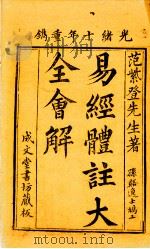 光緒十一年重鐫
范紫登先生著
易經體註大
全會解
成文堂書坊藏板